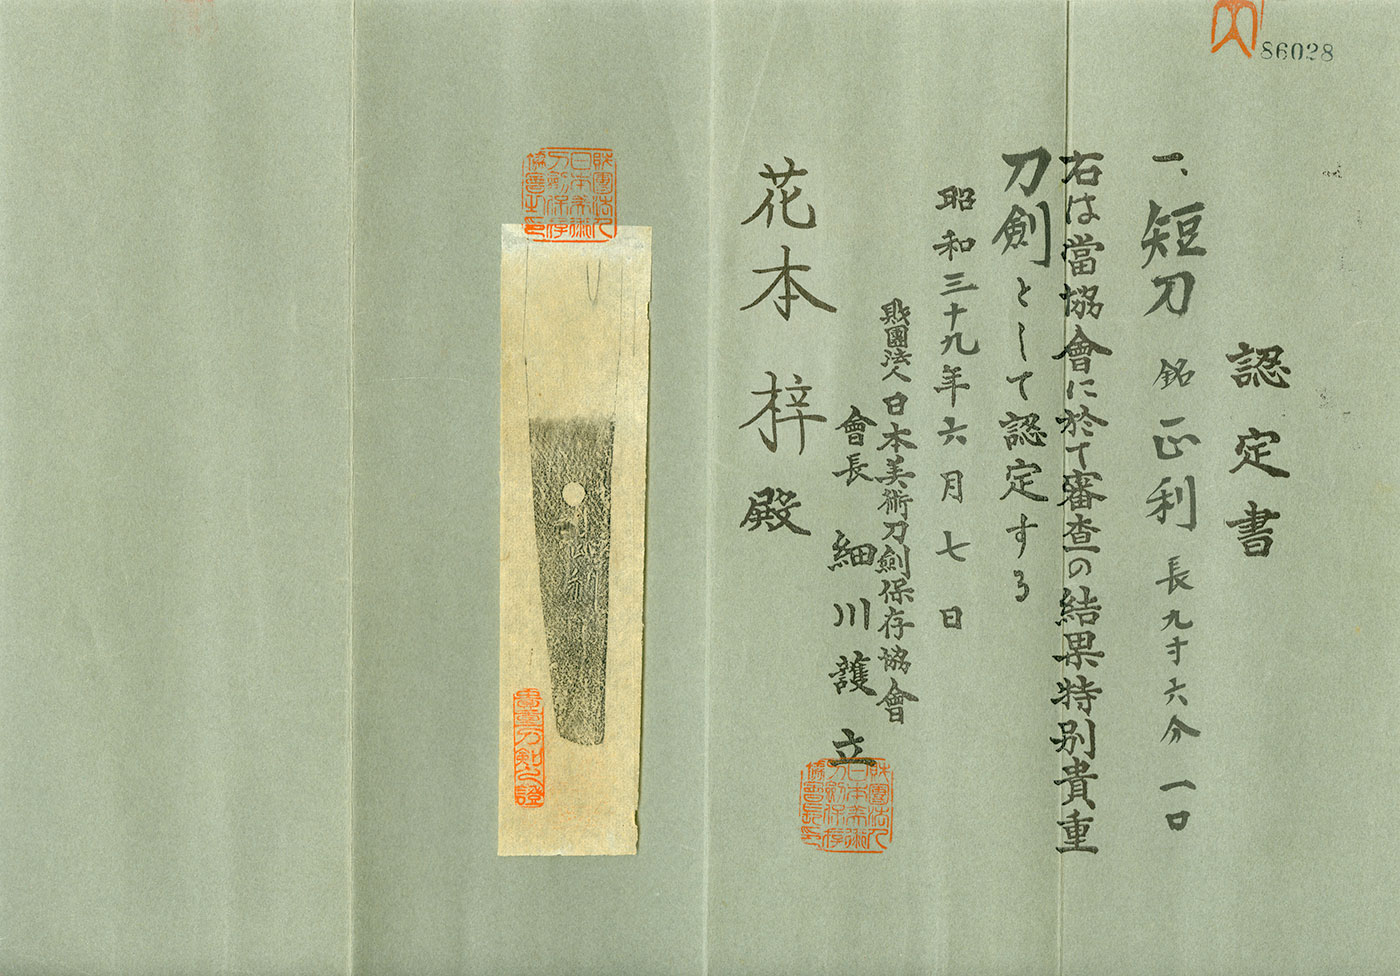 86028
認定書
一、短刀 銘 正利 長九寸六分 一口
右は當協會に於て審査の結果特別貴重
刀劍として認定する
昭和三十九年六月七日
財團法人日本美術刀劍保存協會
會長 細川護立
財團法人日本美術刀劍保存協會長印
花本梓殿
財團法人日本美術刀劍保存協會之印
正利